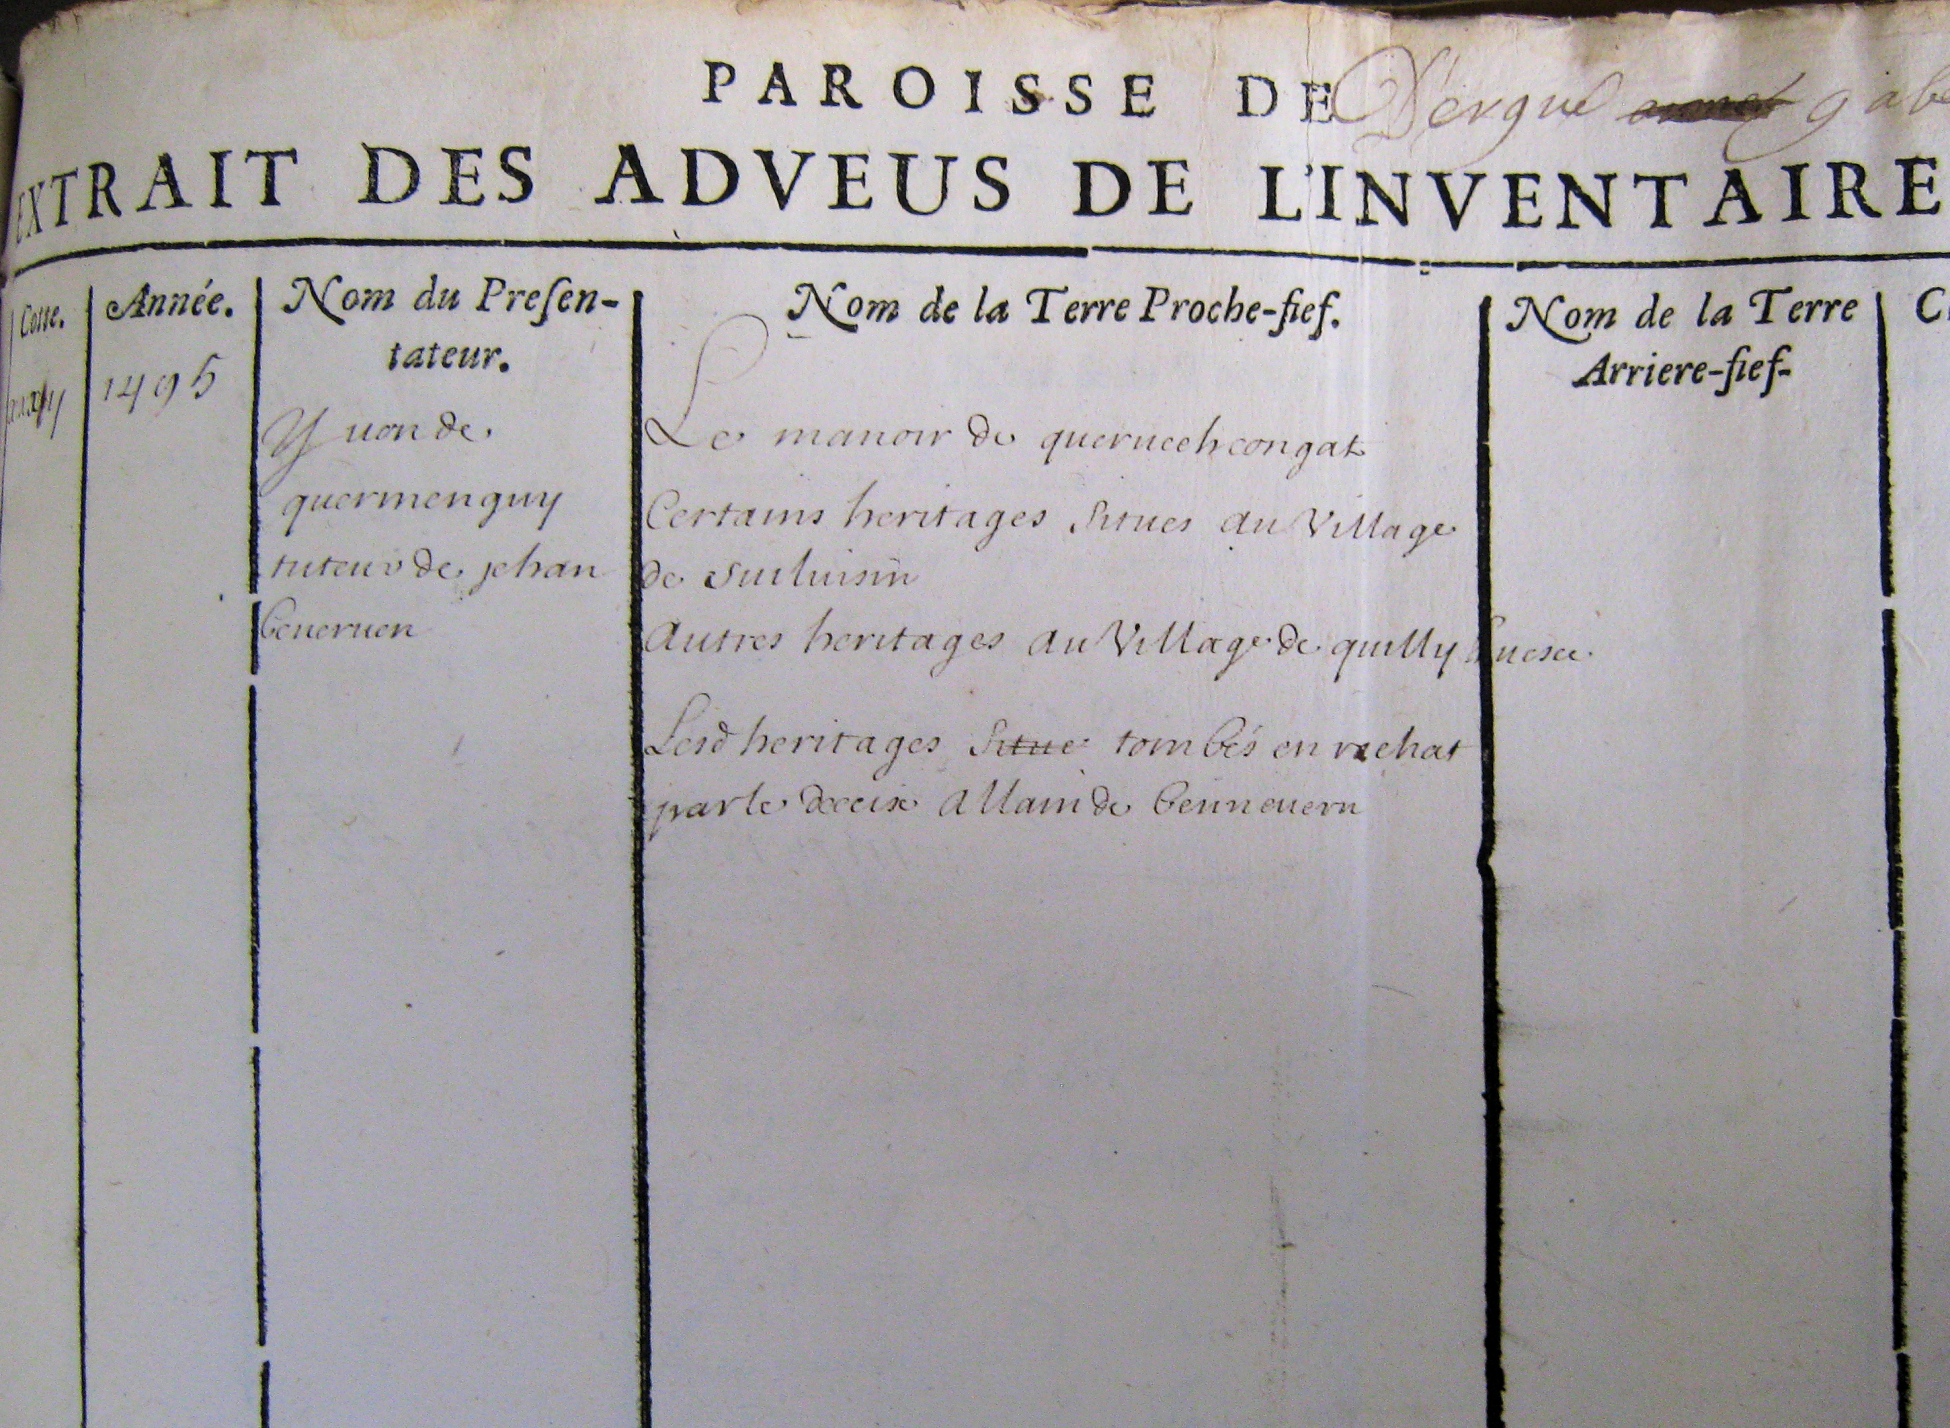 PAROISSE DE D'ergué gabe
EXTRAIT DES ADVEUS DE L'INVENTAIRE
Cotte.
Année.
Nom du Presen-
tateur.
Nom de la Terre Proche-fief.
Nom de la Terre
Arriere-fief-
1495
Yuon de
quermenguy
tuteur de jehan
beneruen
Le manoir de queruech congat
Certains heritages situes au Village
de
autres heritages au Village de quilly
Lesd heritages situe tombés en rachat
par le deceix allain de bennouern